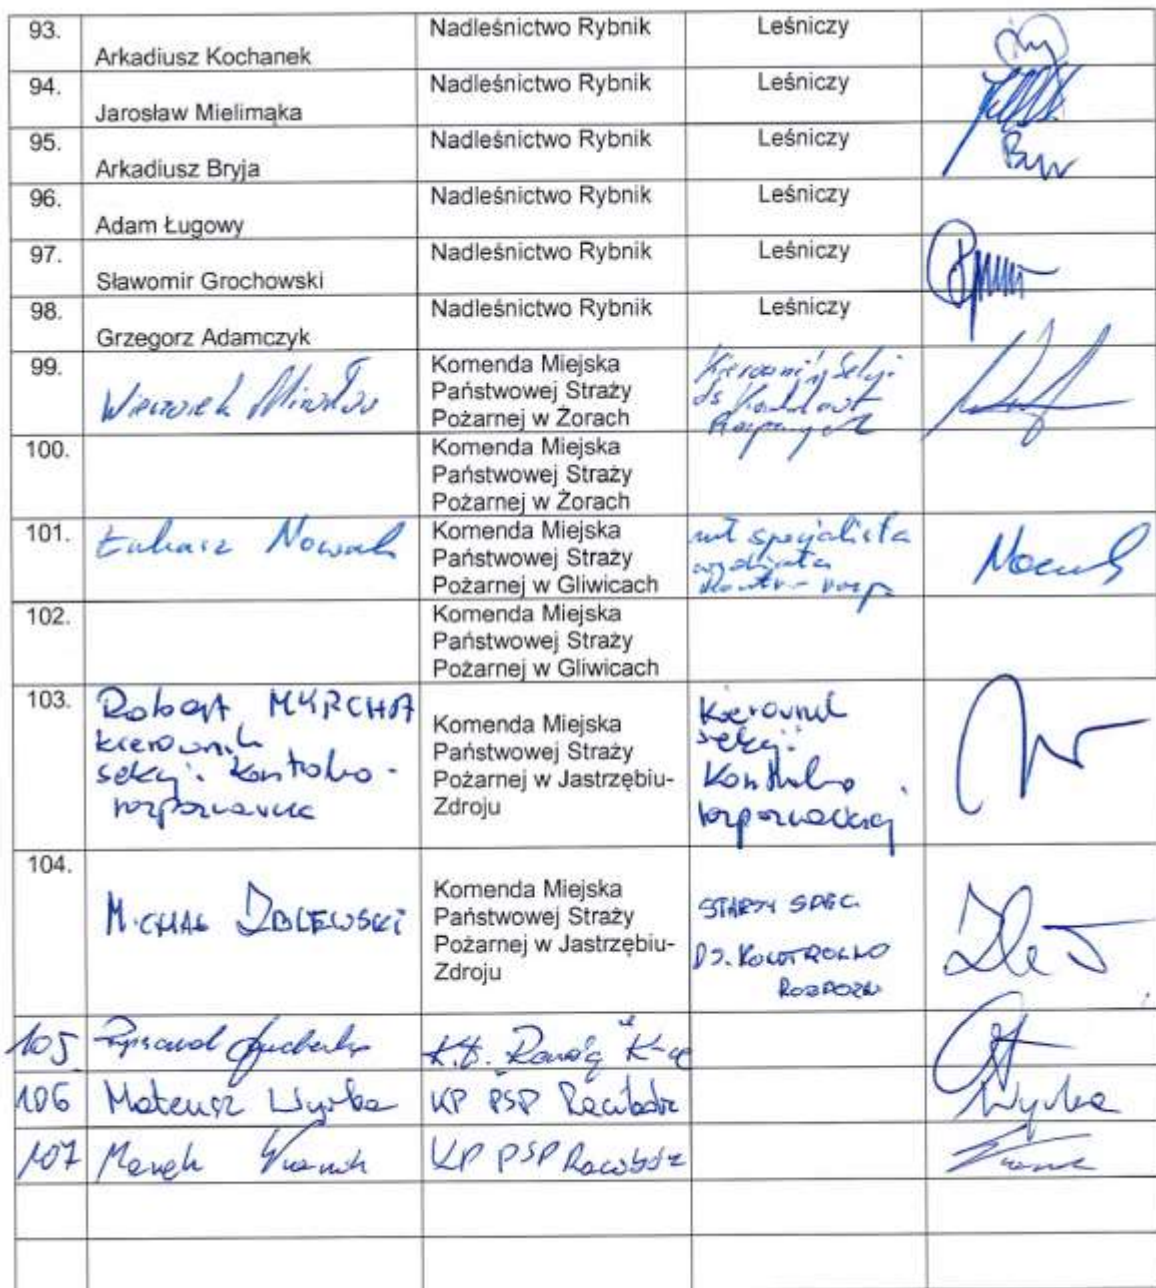 93.
Arkadiusz Kochanek
Nadleśnictwo Rybnik
Leśniczy
94.
Jarosław Mielimąka
Nadleśnictwo Rybnik
Leśniczy
95.
Arkadiusz Bryja
Nadleśnictwo Rybnik
Leśniczy
96.
Adam Ługowy
Nadleśnictwo Rybnik
Leśniczy
97.
Sławomir Grochowski
Nadleśnictwo Rybnik
Leśniczy
98.
Grzegorz Adamczyk
Nadleśnictwo Rybnik
Leśniczy
99.
Komenda Miejska
Państwowej Straży
Pożarnej w Żorach
100.
Komenda Miejska
Państwowej Straży
Pożarnej w Żorach
101.
Łukasz Nowak
Komenda Miejska
Państwowej Straży
Pożarnej w Gliwicach
mł specjalista
wydziału
102.
Komenda Miejska
Państwowej Straży
Pożarnej w Gliwicach
103.
Robert MYRCHA
kierownik
sekcji kontrolno-
Komenda Miejska
Państwowej Straży
Pożarnej w Jastrzębiu-
Zdroju
Kierownik
sekcji
kontrolno
104.
Komenda Miejska
Państwowej Straży
Pożarnej w Jastrzębiu-
Zdroju
STARSZY SPEC.
DS. KONTROLNO
ROZPOZN
105
106
Mateusz Wyrba
KP PSP Racibórz
107
Marek
KP PSP Racibórz